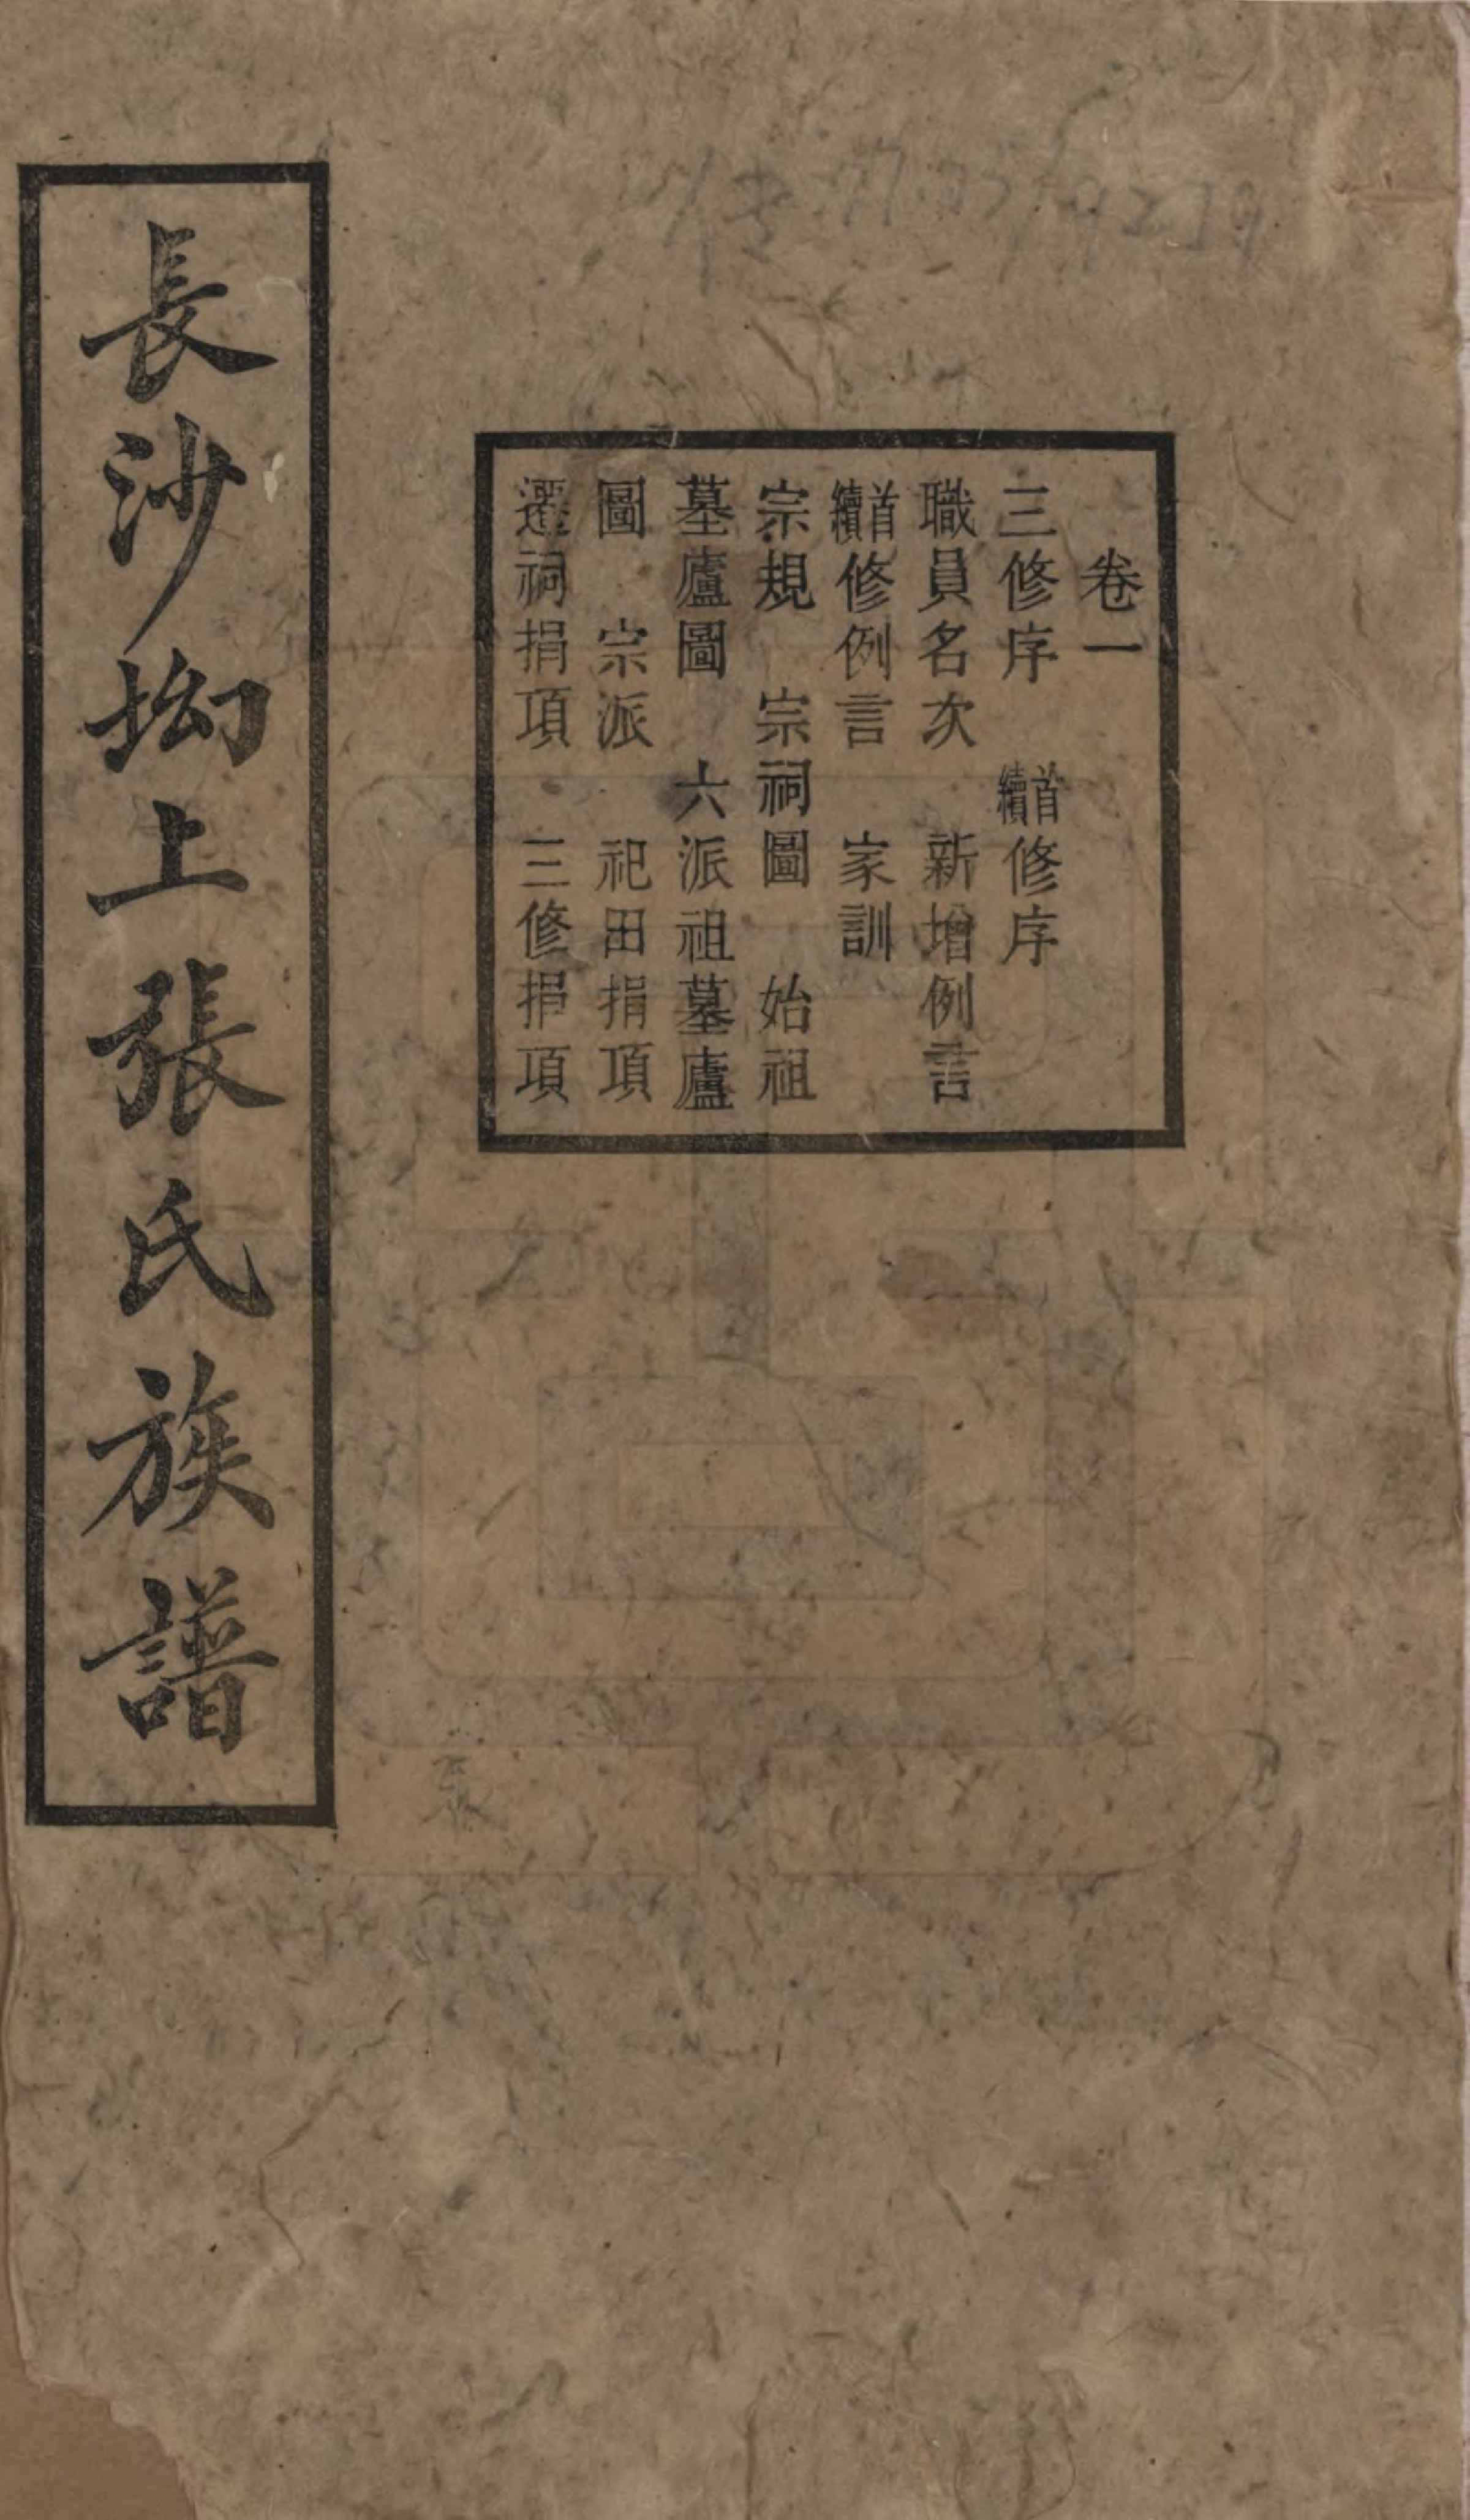 卷一
三修序　首續修序
職員名次　新增例言
首續修例言　家訓
宗規　宗祠圖　始祖
墓廬圖　六派祖墓廬
圖　宗派　祀田捐項
遷祠捐項　三修捐項
長沙坳上張氏族譜